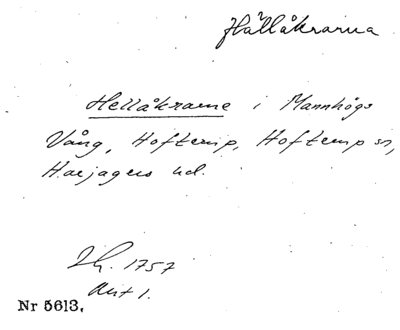 Hällåkrarna
Hellåkrarne i Mannhögs
Vång, Hoftemp, Hoftemp sn,
Harjagers hd.
Lh. 1757
Akt 1.
Nr 5613.